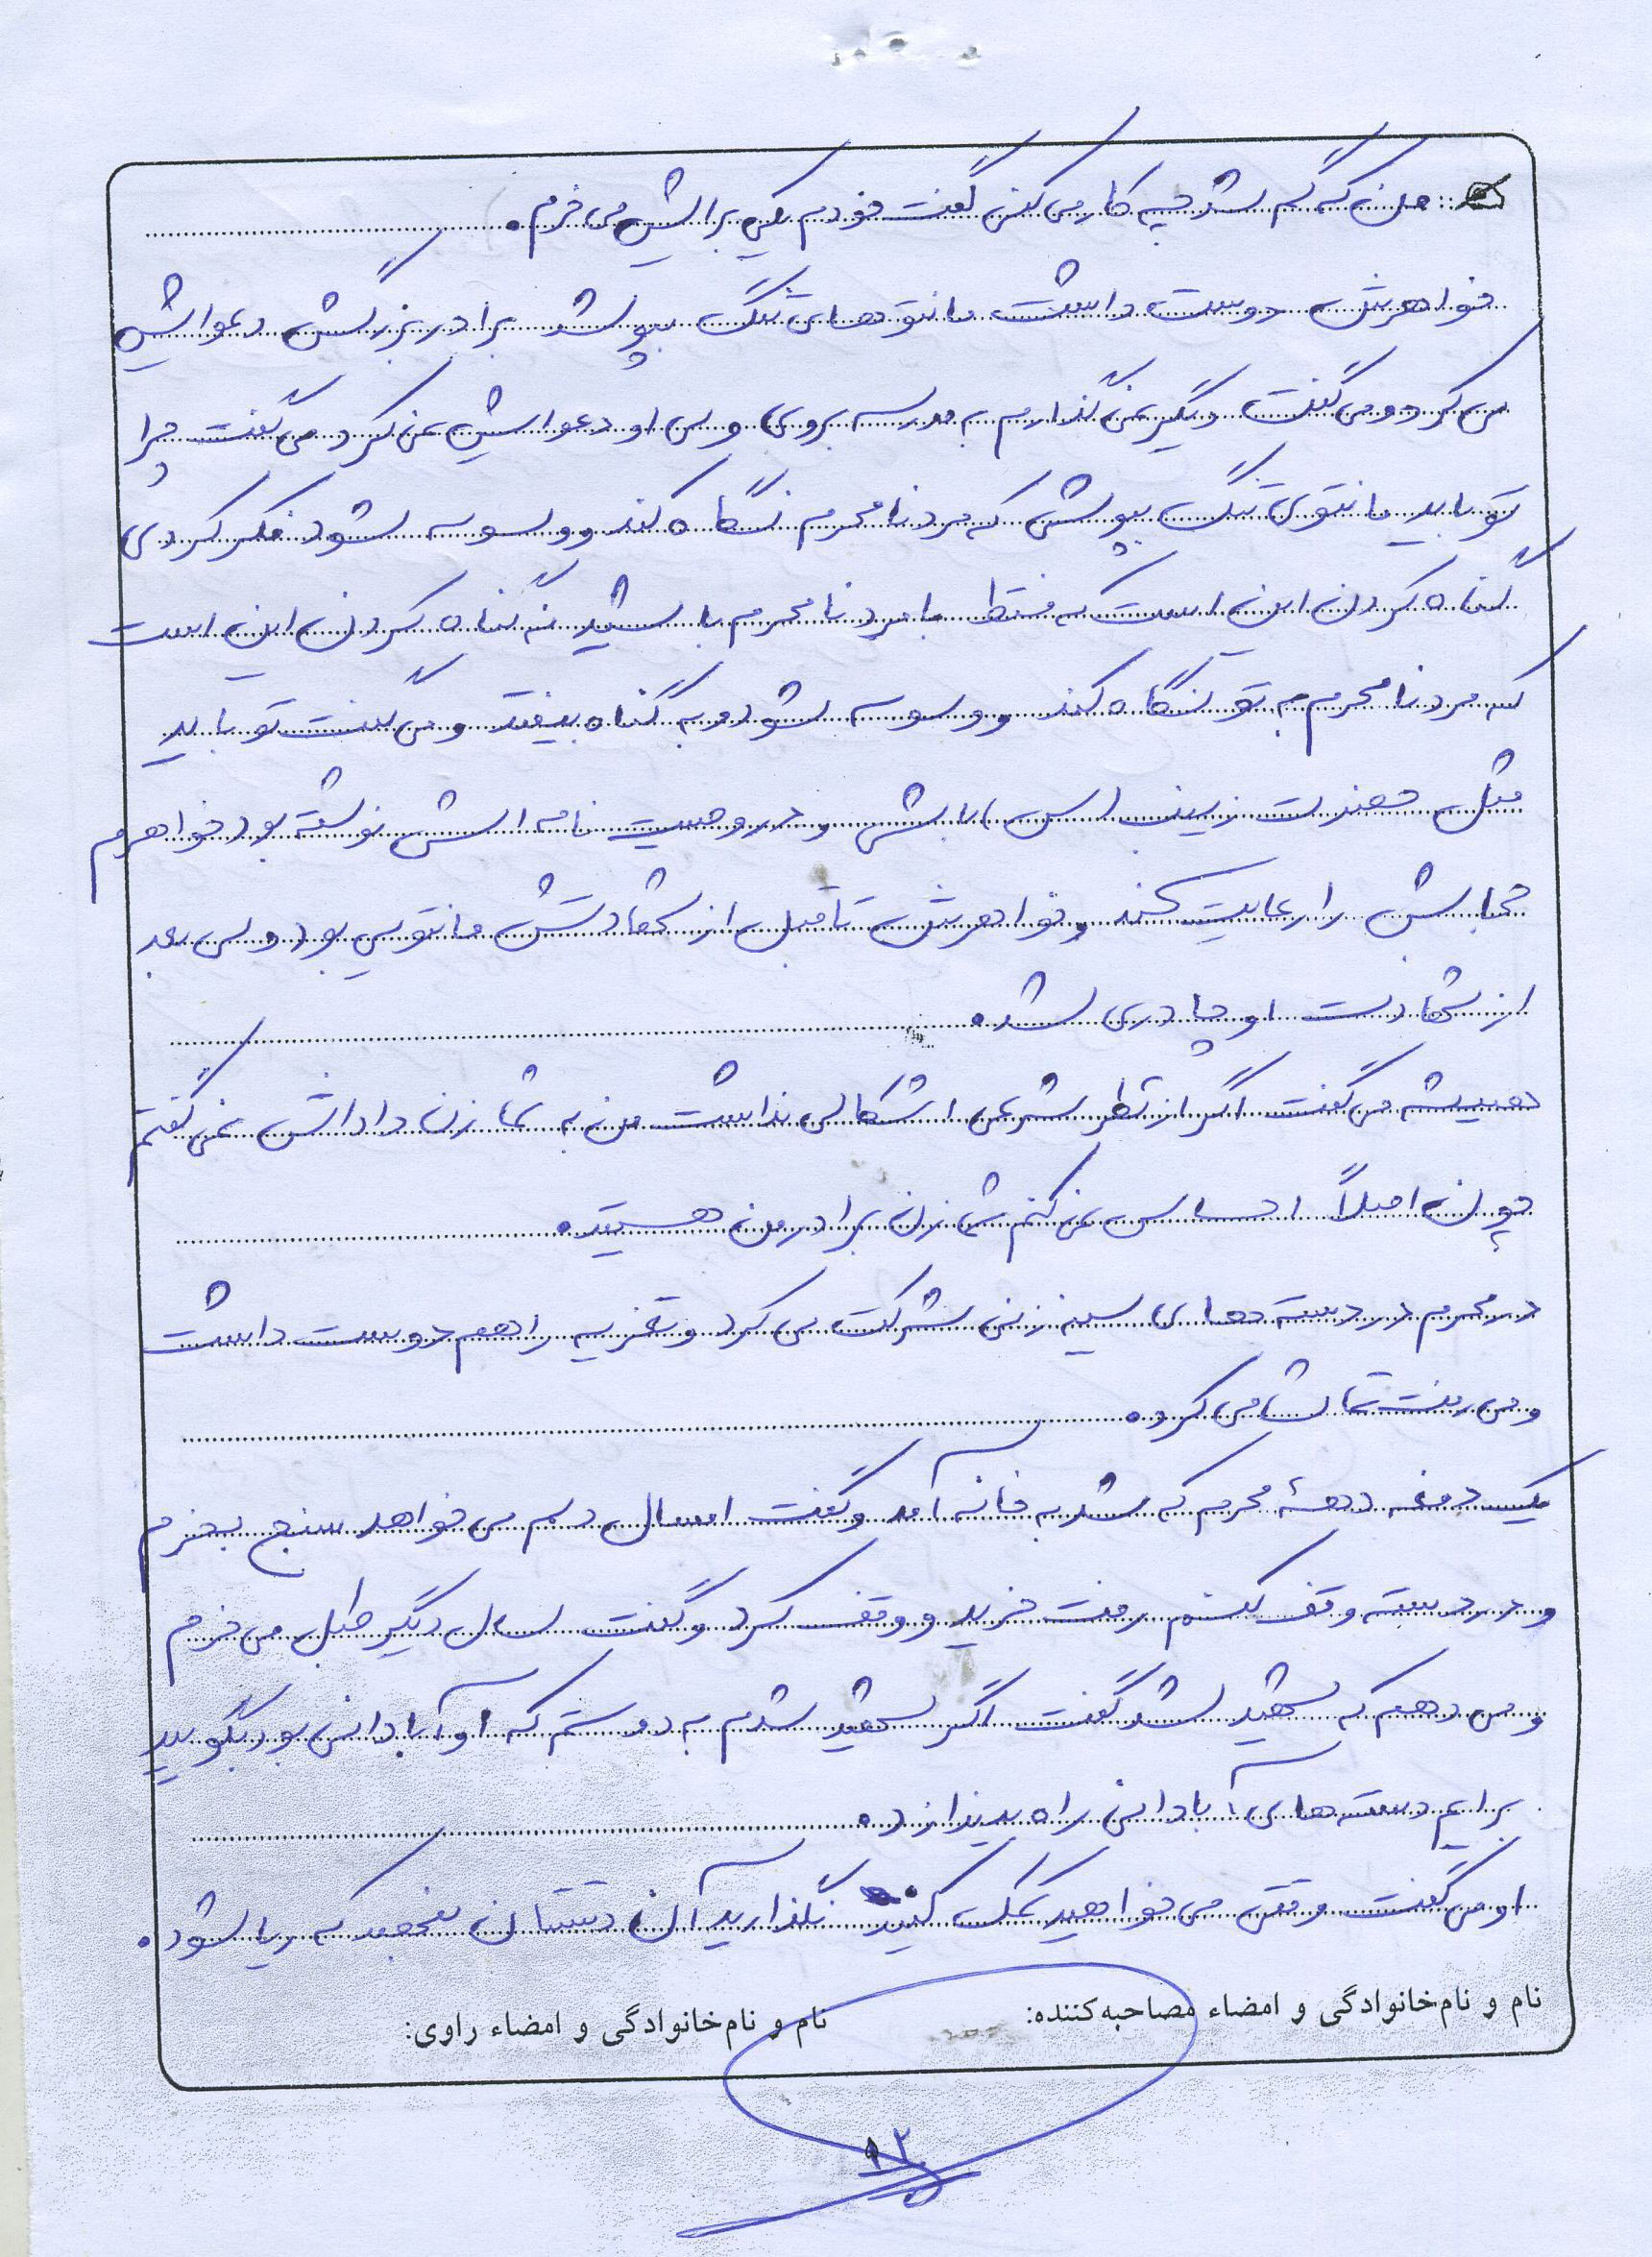 من که گم شد چه کار می کنی گفت خودم یکی برایش می خرم.
خواهرش دوست داشت مانتوهای تنگ بپوشد برادر بزرگش دعوایش
می کرد و می گفت دیگر نمی گذارم به مدرسه بروی ولی او دعوایش نمی کرد می گفت چرا
تو باید مانتوی تنگ بپوشی که مرد نامحرم نگاه کند و وسوسه شود فکر کردی
گناه کردن این است که فقط با مرد نامحرم باشید نه گناه کردن این است
که مرد نامحرم به تو نگاه کند و وسوسه شود و به گناه بیفتد و می گفت تو باید
مثل حضرت زینب (س) باشی و در وصیت نامه اش نوشته بود خواهرم
حجابش را رعایت کند و خواهرش تا قبل از شهادتش مانتویی بود ولی بعد
از شهادت او چادری شد.
همیشه می گفت اگر از نظر شرعی اشکالی نداشت من به شما زن داداش نمی گفتم
چون اصلاً احساس نمی کنم شما زن برادر من هستید.
در محرم در دسته های سینه زنی شرکت می کرد و تعزیه را هم دوست داشت
و می رفت تماشا می کرد.
یک دفعه دههٔ محرم که شد به خانه آمد و گفت امسال دلم می خواهد سنج بخرم
و در دسته وقف کنم رفت خرید و وقف کرد و گفت سال دیگر طبل می خرم
و می دهم که شهید شد گفت اگر شهید شدم به دوستم که او آبادانی بود بگویید
برایم دسته های آبادانی راه بیندازد.
او می گفت وقتی می خواهید کمک کنید نگذارید آن دستتان بفهمد که ریا شود.
نام و نام‌خانوادگی و امضاء مصاحبه‌کننده:
نام و نام‌خانوادگی و امضاء راوی: